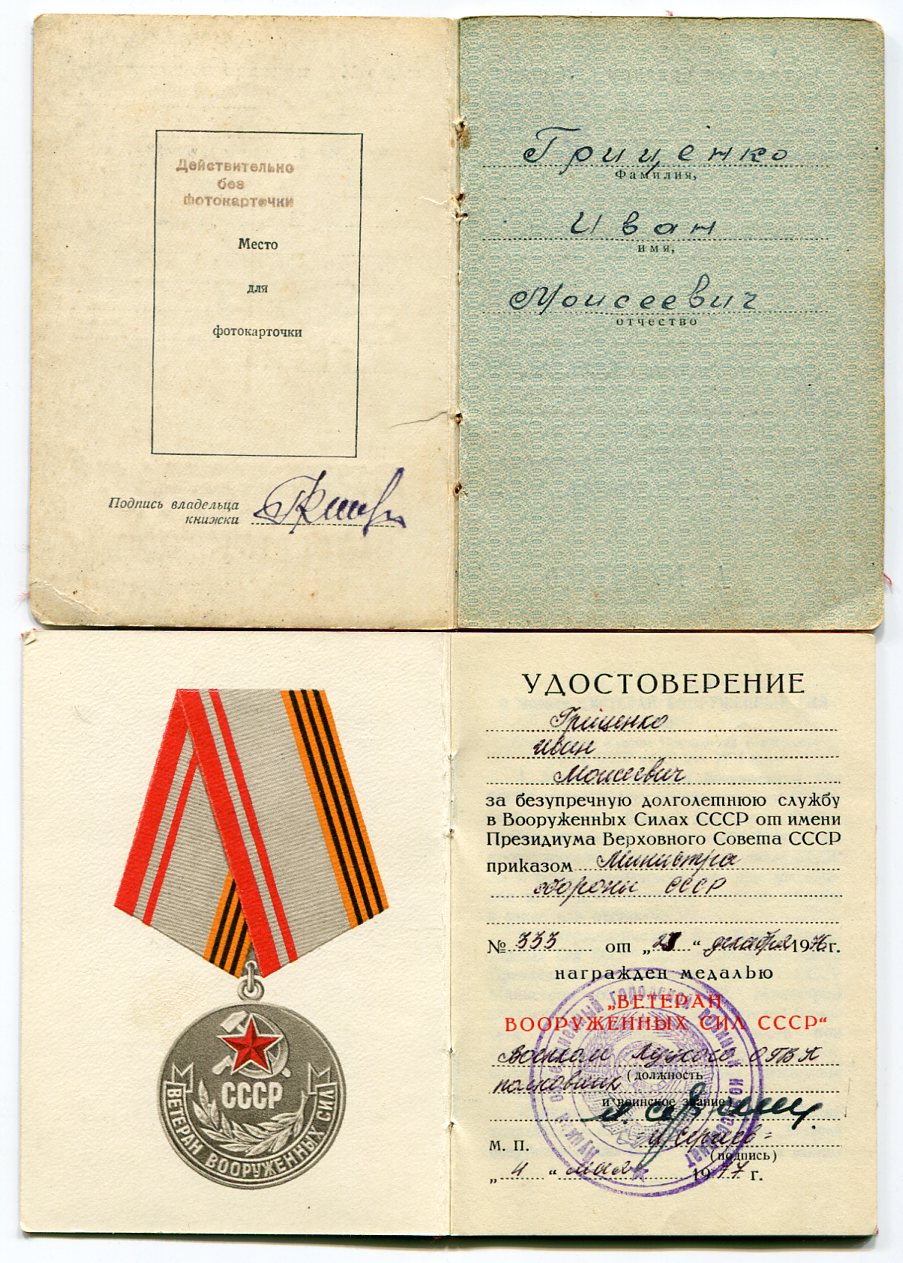 Действительно
без
фотокарточки
Место
для
фотокарточки
Подпись владельца
книжки
Гриценко
Фамилия,
Иван
имя,
Моисеевич
отчество
СССР
ВЕТЕРАН ВООРУЖЕННЫХ СИЛ
УДОСТОВЕРЕНИЕ
Гриценко
Иван
Моисеевич
за безупречную долголетнюю службу
в Вооруженных Силах СССР от имени
Президиума Верховного Совета СССР
приказом Министра
обороны СССР
№ 333 от „ “ декабря 1976 г.
награжден медалью
„ВЕТЕРАН
ВООРУЖЕННЫХ СИЛ СССР“
Военком ОГВК
полковник (должность
и воинское звание)
М. П.
(подпись)
„4“ мая 1977 г.